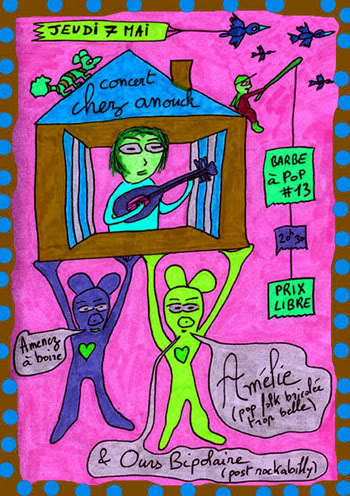 JEUDI 7 MAI
concert
chez anouck
BARBE
à POP
#13
20h30
PRIX
LIBRE
Amenez
à boire
Amélie
(pop folk bricolée
trop belle)
& Ours Bipolaire
(post rockabilly)